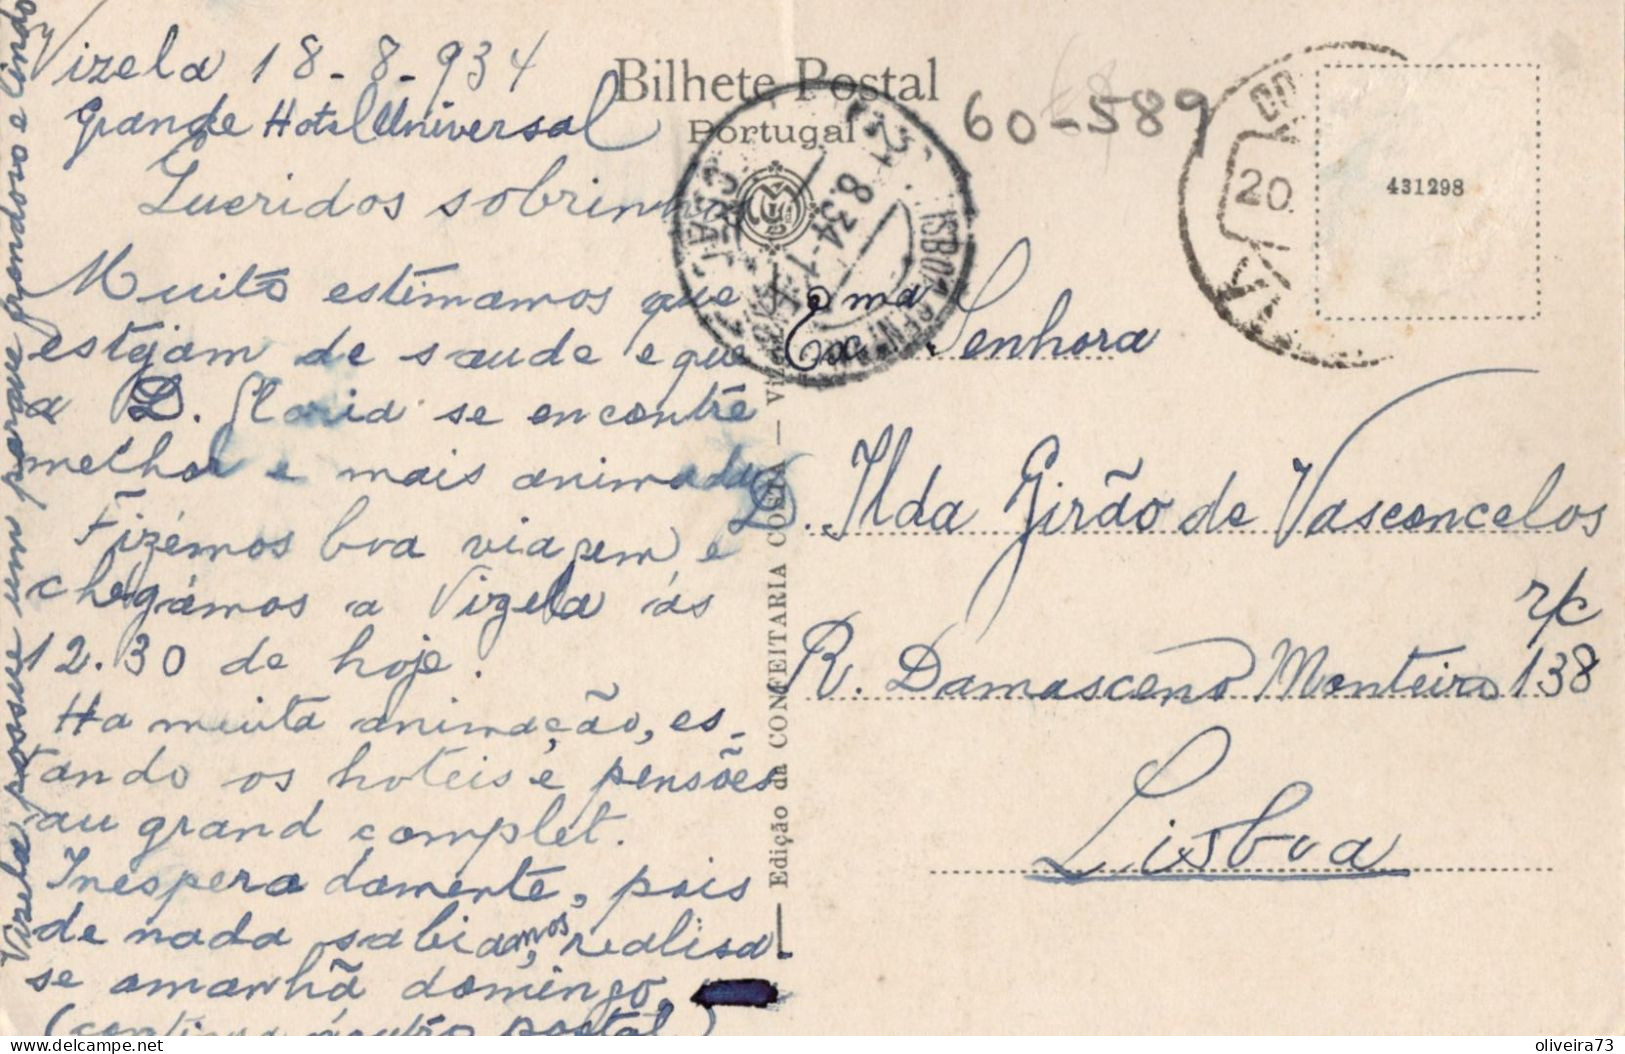 Vizela 18-8-934
Grande Hotel Universal
Queridos sobrinhos
Muito estimamos que
estejam de saude e que
a D. Gloria se encontre
melhor e mais animada
Fizémos boa viagem e
chegámos a Vizela ás
12.30 de hoje.
Ha muita animação, es-
tando os hoteis e pensões
au grand complet.
Inesperadamente, pois
de nada sabiamos, realisa-
se amanhã domingo,
(continua noutro postal)
Vizela possue um parque grandioso e lindo
Bilhete Postal
Portugal
60-589
431298
20.
8.34-
LISBOA CENTRAL
Edição da CONFEITARIA COSTA — Vizela
Exma Senhora
D. Ilda Girão de Vasconcelos
r/c
R. Damasceno Monteiro 138
Lisboa
oliveira73